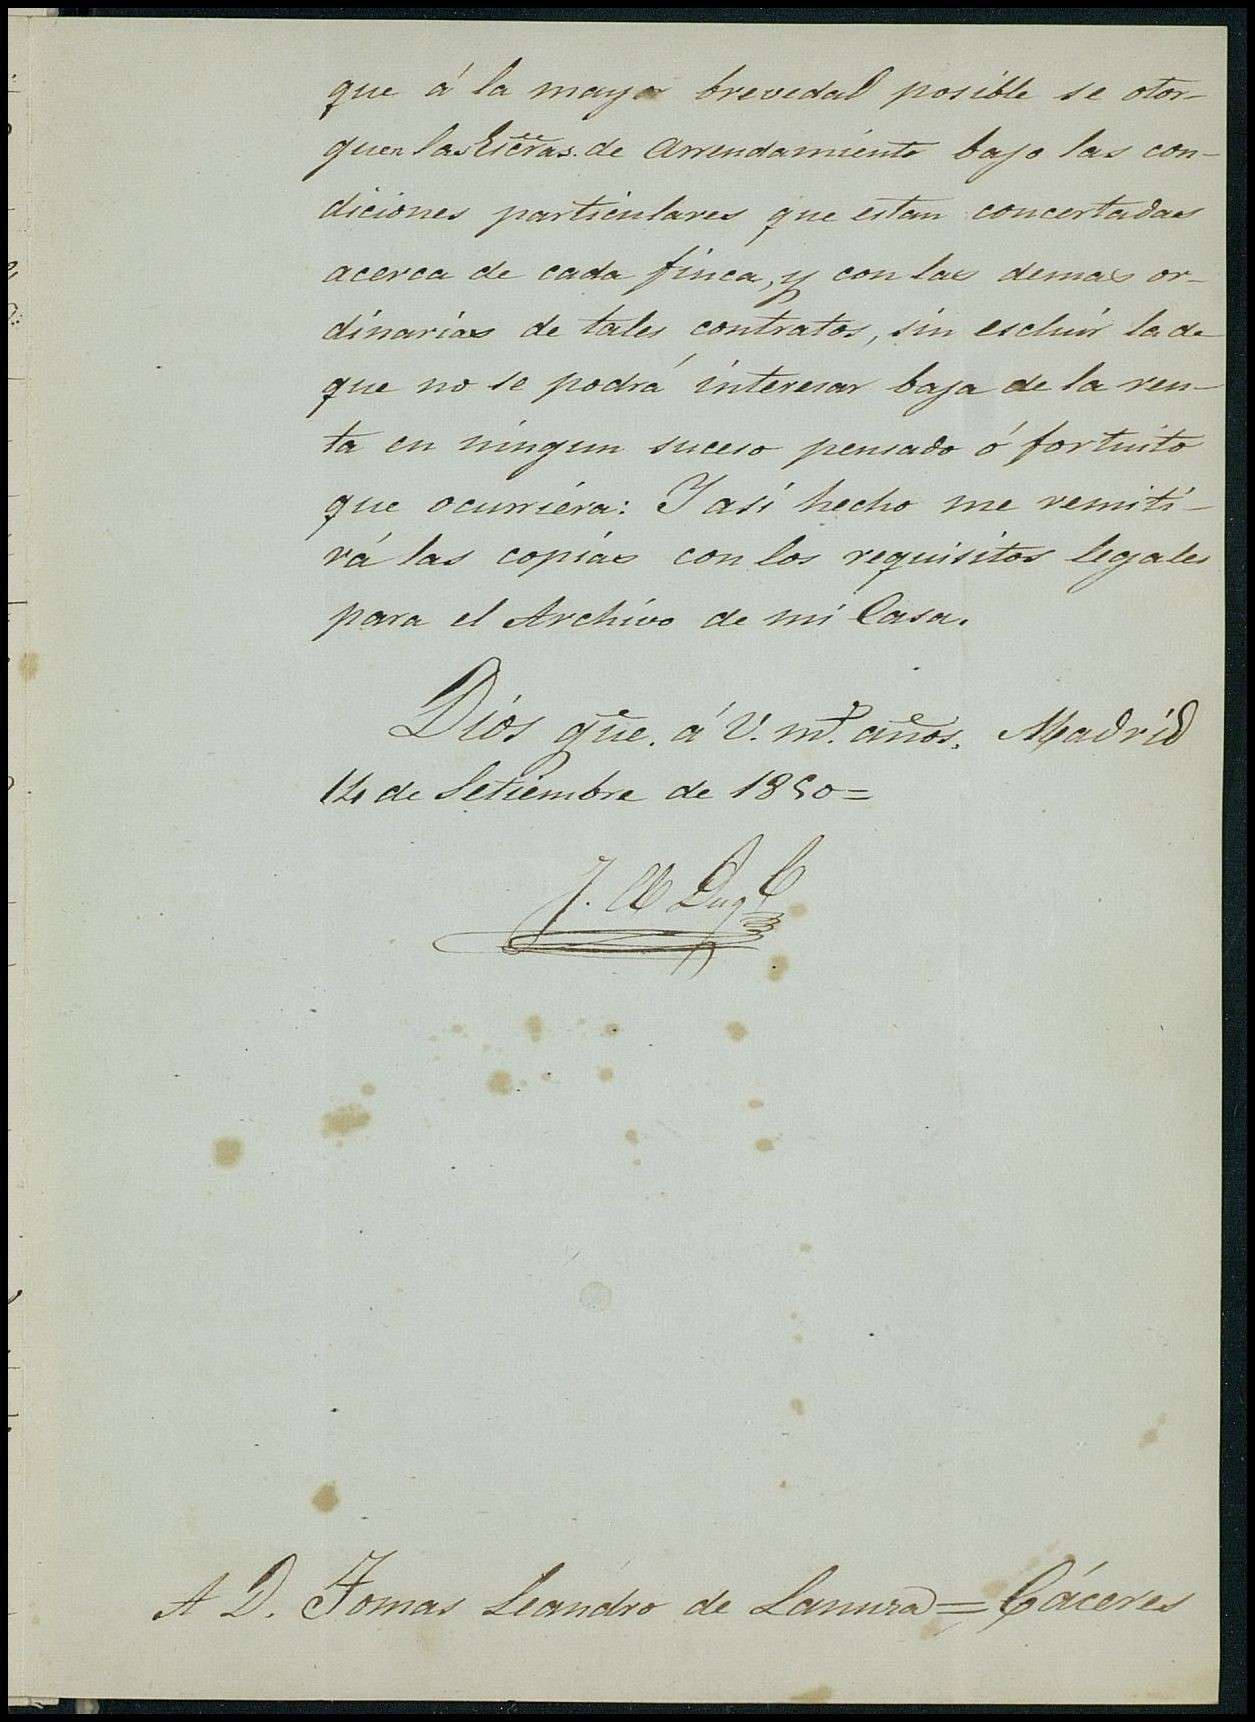 que á la mayor brevedad posible se otor-
guen las Escras. de Arrendamiento bajo las con-
diciones particulares que estan concertadas
acerca de cada finca, y con las demas or-
dinarias de tales contratos, sin escluir la de
que no se podrá interesar baja de la ren-
ta en ningun suceso pensado ó fortuito
que ocurriera: Y asi hecho me remiti-
rá las copias con los requisitos legales
para el Archivo de mi Casa.
Dios gue. á V. ms. años. Madrid
14 de Setiembre de 1850=
A D. Tomas Leandro de Lanuza = Cáceres